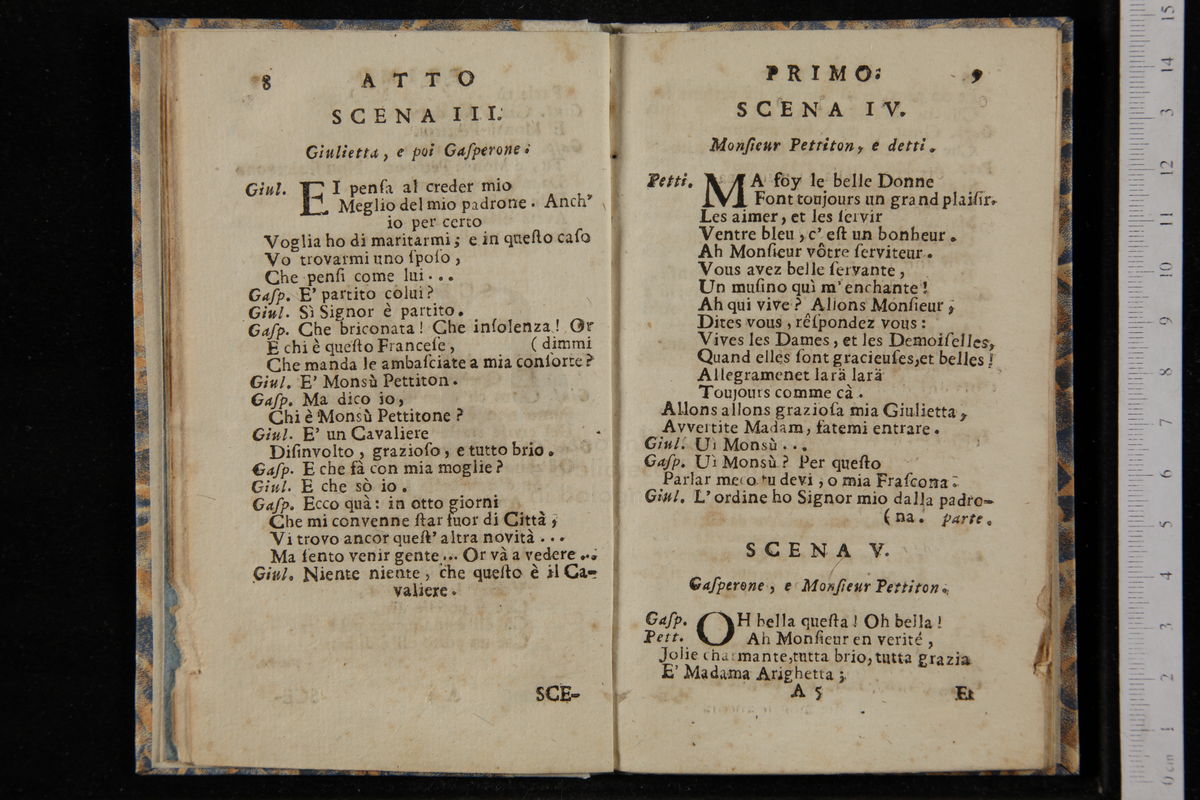 8 ATTO
SCENA III.
Giulietta, e poi Gaſperone.
Giul. EI penſa al creder mio
Meglio del mio padrone. Anch'
io per certo
Voglia ho di maritarmi; e in queſto caſo
Vo trovarmi uno ſpoſo,
Che penſi come lui...
Gaſp. E' partito colui?
Giul. Sì Signor è partito.
Gaſp. Che briconata! Che inſolenza! Or
E chi è queſto Franceſe, (dimmi
Che manda le ambaſciate a mia conſorte?
Giul. E' Monsù Pettiton.
Gaſp. Ma dico io,
Chi è Monsù Pettitone?
Giul. E' un Cavaliere
Diſinvolto, grazioſo, e tutto brio.
Gaſp. E che fà con mia moglie?
Giul. E che sò io.
Gaſp. Ecco quà: in otto giorni
Che mi convenne ſtar fuor di Città,
Vi trovo ancor queſt' altra novità...
Ma ſento venir gente... Or và a vedere...
Giul. Niente niente, che queſto è il Ca-
valiere.
SCE-
PRIMO. 9
SCENA IV.
Monſieur Pettiton, e detti.
Petti. MA foy le belle Donne
Font toujours un grand plaiſir,
Les aimer, et les ſervir
Ventre bleu, c' eſt un bonheur.
Ah Monſieur vôtre ſerviteur.
Vous avez belle ſervante,
Un muſino quì m' enchante!
Ah qui vive? Allons Monſieur,
Dites vous, rêſpondez vous:
Vives les Dames, et les Demoiſelles,
Quand elles ſont gracieuſes,et belles!
Allegramenet larä larä
Toujours comme cà.
Allons allons grazioſa mia Giulietta,
Avvertite Madam, fatemi entrare.
Giul. Uì Monsù...
Gaſp. Uì Monsù? Per queſto
Parlar meco tu devi, o mia Fraſcona.
Giul. L' ordine ho Signor mio dalla padro-
(na. parte.
SCENA V.
Gaſperone, e Monſieur Pettiton.
Gaſp. OH bella queſta! Oh bella!
Pett. Ah Monſieur en verité,
Jolie charmante,tutta brio, tutta grazia
E' Madama Arighetta;
A 5 Et
15
14
13
12
11
10
9
8
7
6
5
4
3
2
1
0 cm